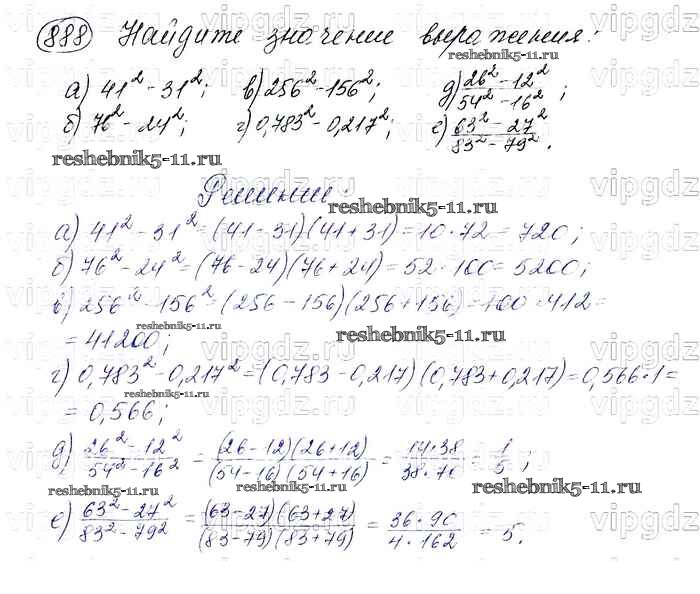 888 Найдите значение выражения:
а) 41² - 31²; в) 256² - 156²; д) (26² - 12²)/(54² - 16²);
б) 76² - 24²; г) 0,783² - 0,217²; е) (63² - 27²)/(83² - 79²).
reshebnik5-11.ru
reshebnik5-11.ru
Решение:
reshebnik5-11.ru
а) 41² - 31² = (41 - 31)(41 + 31) = 10·72 = 720;
б) 76² - 24² = (76 - 24)(76 + 24) = 52·100 = 5200;
в) 256² - 156² = (256 - 156)(256 + 156) = 100·412 =
= 41200;
reshebnik5-11.ru
reshebnik5-11.ru
г) 0,783² - 0,217² = (0,783 - 0,217)(0,783 + 0,217) = 0,566·1 =
= 0,566;
reshebnik5-11.ru
д) (26² - 12²)/(54² - 16²) = (26 - 12)(26 + 12)/(54 - 16)(54 + 16) = 14·38/38·70 = 1/5;
reshebnik5-11.ru
reshebnik5-11.ru
reshebnik5-11.ru
е) (63² - 27²)/(83² - 79²) = (63 - 27)(63 + 27)/(83 - 79)(83 + 79) = 36·90/4·162 = 5.
vipgdz.ru